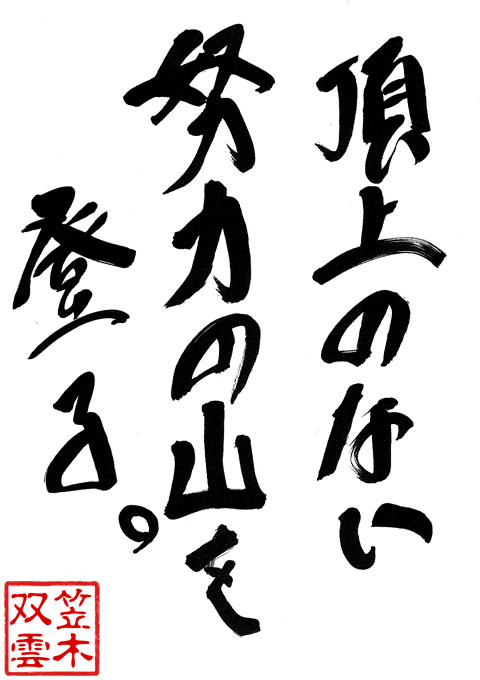 頂上のない
努力の山を
登る。
笠木
双雲